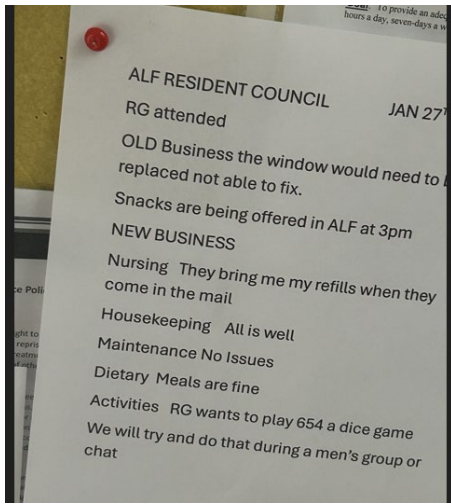 To provide an
hours a day, seven-days a
ALF RESIDENT COUNCIL JAN 27
RG attended
OLD Business the window would need to
replaced not able to fix.
Snacks are being offered in ALF at 3pm
NEW BUSINESS
Nursing They bring me my refills when they
come in the mail
Housekeeping All is well
Maintenance No Issues
Dietary Meals are fine
Activities RG wants to play 654 a dice game
We will try and do that during a men's group or
chat